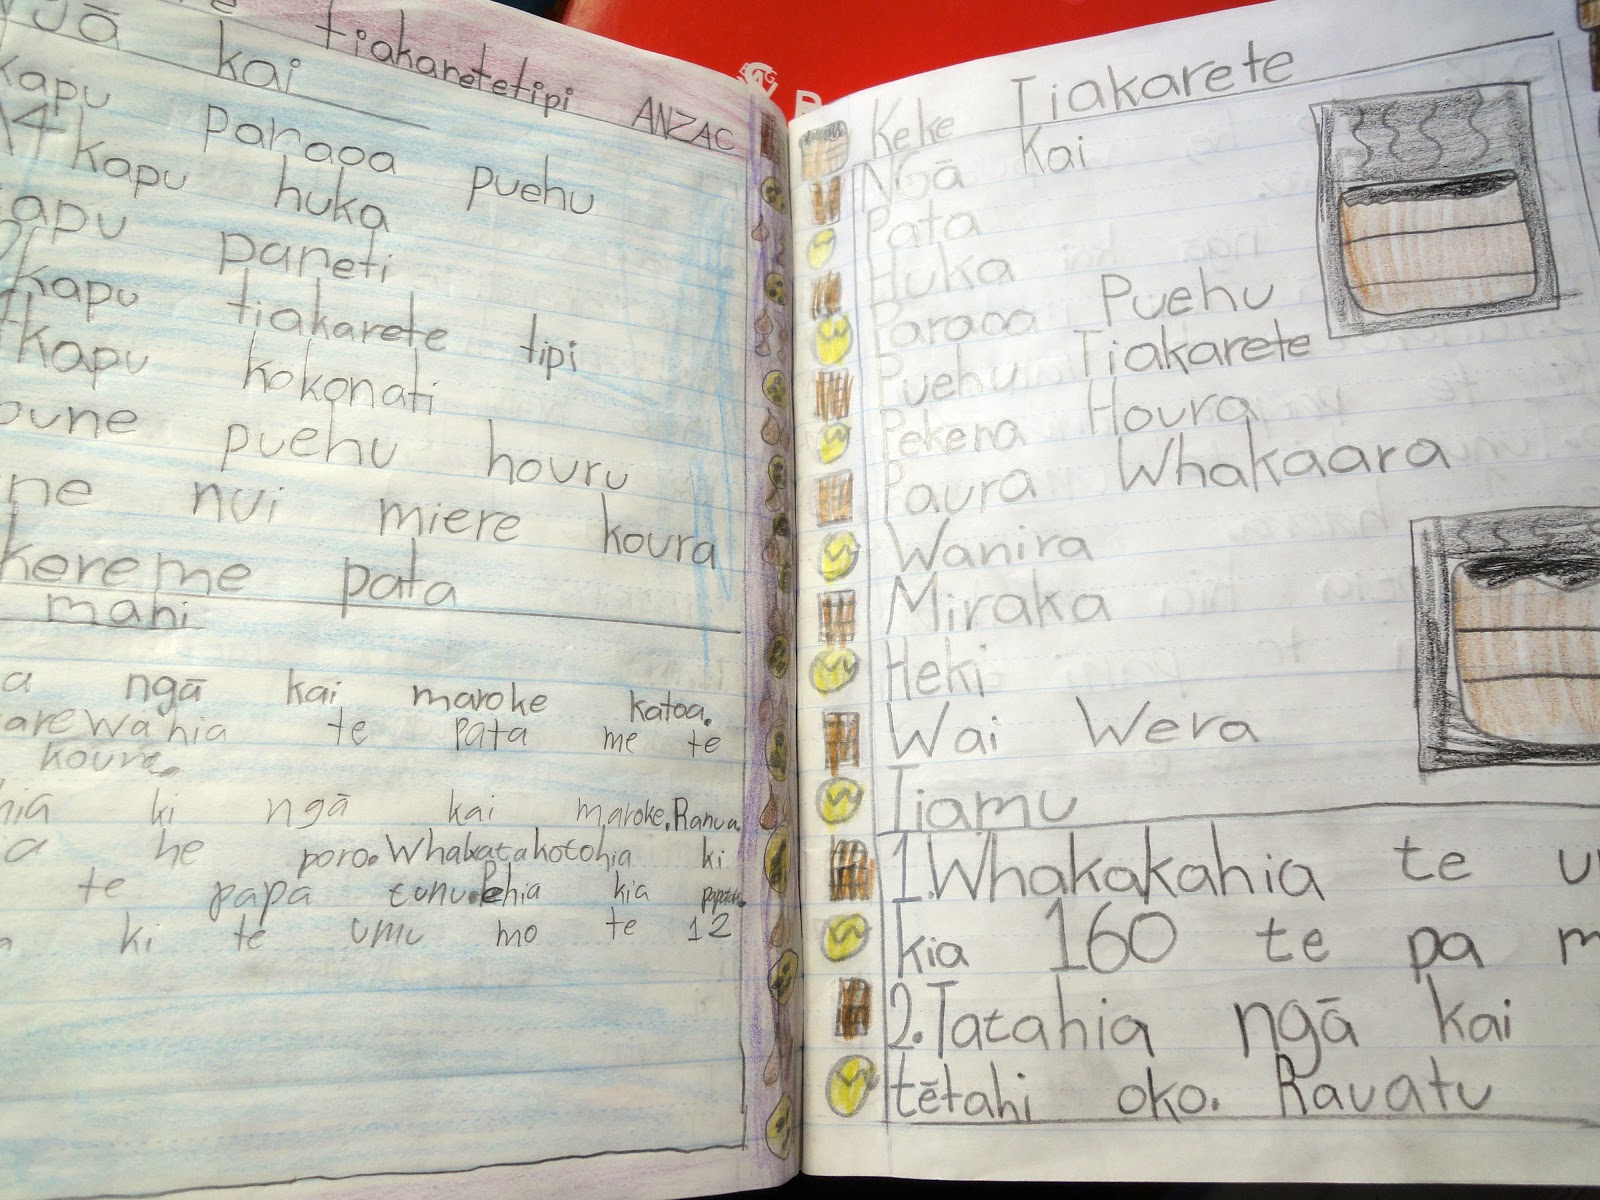 tiakaretetipi ANZAC
Ngā kai
kapu paraoa puehu
1/4 kapu huka
kapu paneti
kapu tiakarete tipi
kapu kokonati
pune puehu houru
ne nui miere koura
kereme pata
mahi
a ngā kai maroke katoa.
arewahia te pata me te
koura.
hia ki ngā kai maroke. Ranua.
ia he poro. Whakatakotohia ki
te papa tunu. Pehia kia
a ki te umu mo te 12
Keke Tiakarete
Ngā Kai
Pata
Huka
Paraoa Puehu
Puehu Tiakarete
Pekena Houra
Paura Whakaara
Wanira
Miraka
Heki
Wai Wera
Tiamu
1. Whakakahia te u
kia 160 te pa m
2. Tatahia ngā kai
tētahi oko. Rauatu